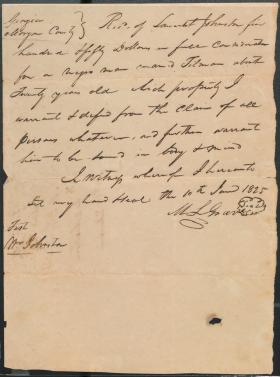 Georgia
Morgan County } Recd. of Samuel Johnston five
hundred & fifty Dollars in full Consideration
for a negro man named Tilman about
Twenty years old which property I
warrant & defend from the claim of all
persons whatever, and further warrant
him to be sound in body & mind
In witness whereof I hereunto
set my hand & seal the 10th Jany 1825
M L Graves
Seal
Test
Wm Johnston